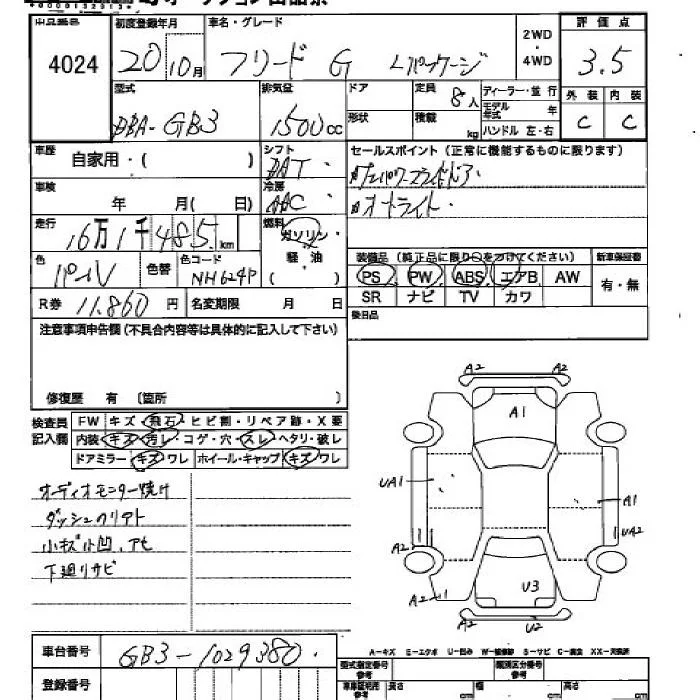 オークション出品票
出品番号 初度登録年月 車名・グレード 2WD・4WD 評価点
4024 20 10月 フリード G Lパッケージ 3.5
型式 排気量 ドア 定員 8人 ディーラー・並行 外装 内装
DBA-GB3 1500cc 形状 積載 kg モデル年式 年 ハンドル 左・右 C C
車歴 自家用・( ) シフト DAT セールスポイント(正常に機能するものに限ります)
車検 年 月( 日) 冷房 AAC 両パワースライドドア
オートライト
走行 16万1千485km 燃料 ガソリン・軽油 ( )
装備品(純正品に限り○をつけてください) 新車保証書
色 パール 色替 色コード NH624P PS PW ABS エアB AW 有・無
SR ナビ TV カワ
R券 11,860円 名変期限 月 日 後日品
注意事項申告欄(不具合内容等は具体的に記入して下さい)
修復歴 有 〔箇所 〕
検査員記入欄 FW キズ・飛石・ヒビ割・リペア跡・X要
内装・キズ・汚レ・コゲ・穴・スレ・ヘタリ・破レ
ドアミラー キズ・ワレ ホイール・キャップ キズ・ワレ
オーディオモニター焼け
ダッシュクリアト
小キズ凹、アセ
下廻りサビ
A2 A2
A1
UA1 A1
A2 UA2
U3
A2 A2 U2
A-キズ E-エクボ U-凹み W-補修跡 S-サビ C-腐食 XX-交換済
車台番号 GB3-1029380
登録番号
型式指定番号参考 類別区分番号参考
車車証明用参考 長さ cm 幅 cm 高さ cm